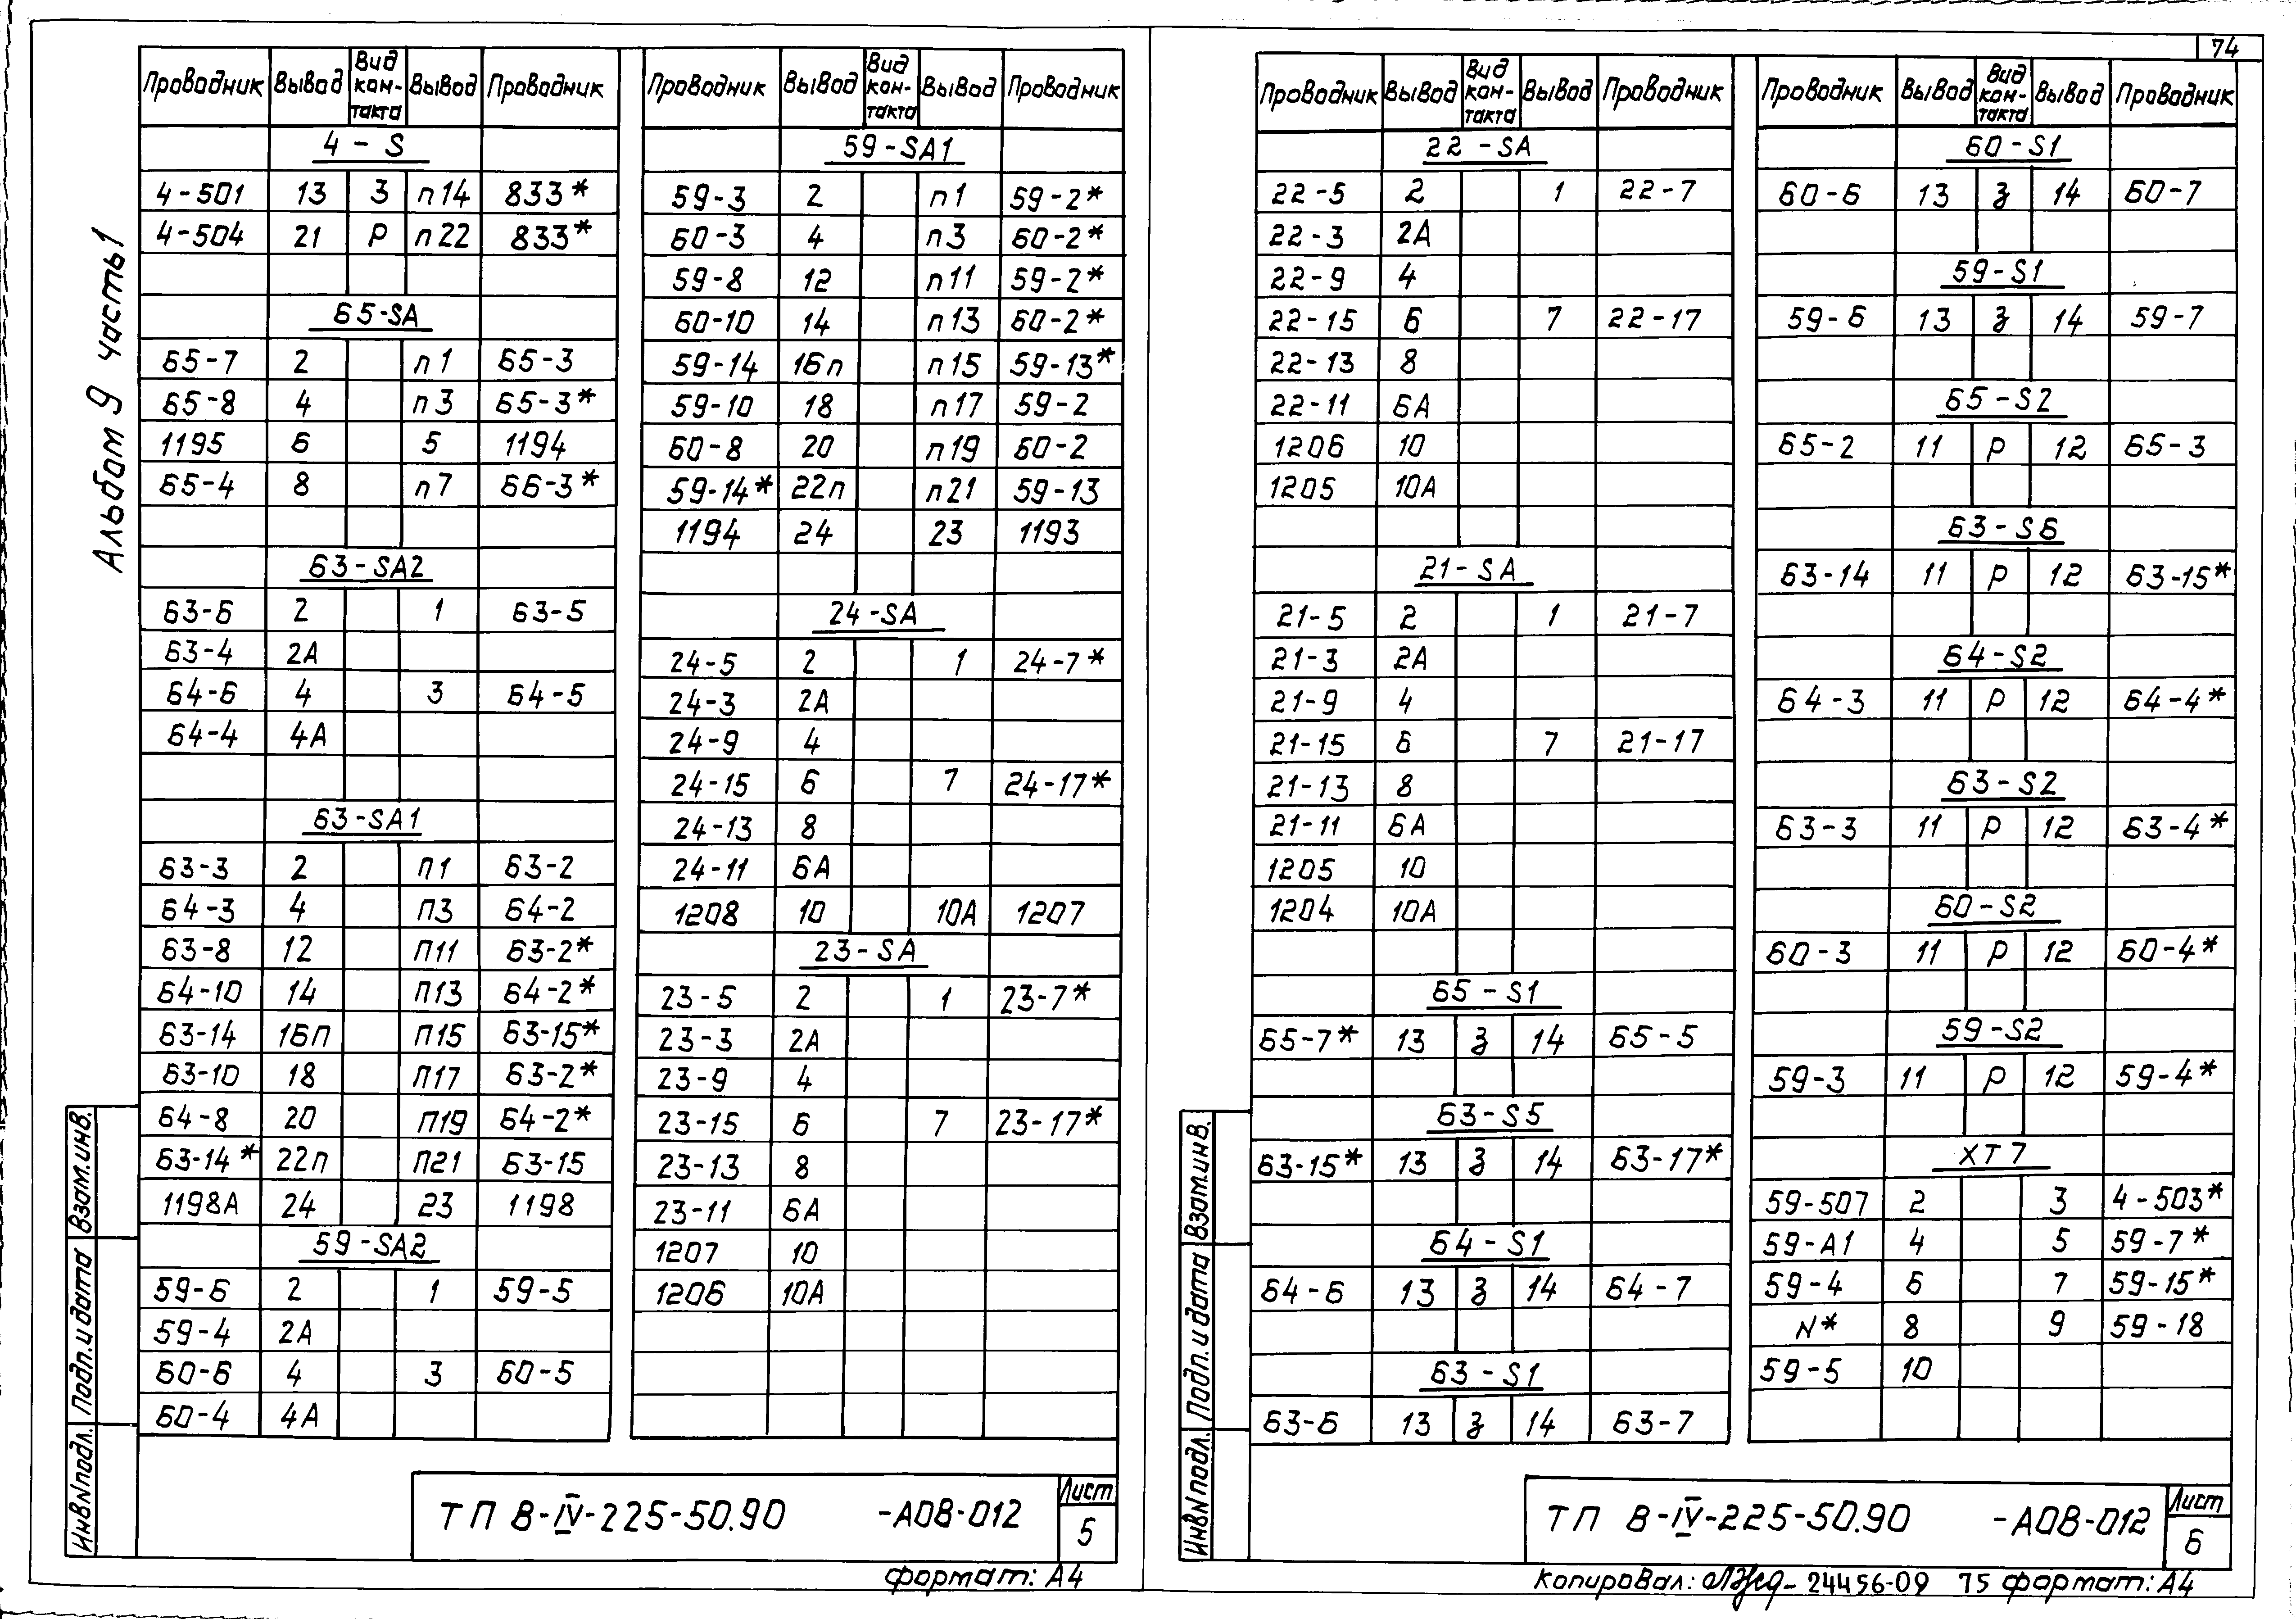 74
Альбом 9 часть 1
Проводник Вывод Вид контакта Вывод Проводник
4-S
4-501 13 З п14 833*
4-504 21 Р п22 833*
65-SA
65-7 2 п1 65-3
65-8 4 п3 65-3*
1195 6 5 1194
65-4 8 п7 66-3*
63-SA2
63-6 2 1 63-5
63-4 2А
64-6 4 3 64-5
64-4 4А
63-SA1
63-3 2 П1 63-2
64-3 4 П3 64-2
63-8 12 П11 63-2*
64-10 14 П13 64-2*
63-14 16П П15 63-15*
63-10 18 П17 63-2*
64-8 20 П19 64-2*
63-14* 22п П21 63-15
1198А 24 23 1198
59-SA2
59-6 2 1 59-5
59-4 2А
60-6 4 3 60-5
60-4 4А
Проводник Вывод Вид контакта Вывод Проводник
59-SA1
59-3 2 п1 59-2*
60-3 4 п3 60-2*
59-8 12 п11 59-2*
60-10 14 п13 60-2*
59-14 16п п15 59-13*
59-10 18 п17 59-2
60-8 20 п19 60-2
59-14* 22п п21 59-13
1194 24 23 1193
24-SA
24-5 2 1 24-7*
24-3 2А
24-9 4
24-15 6 7 24-17*
24-13 8
24-11 6А
1208 10 10А 1207
23-SA
23-5 2 1 23-7*
23-3 2А
23-9 4
23-15 6 7 23-17*
23-13 8
23-11 6А
1207 10
1206 10А
Инв N подл. Подп. и дата Взам. инв.
ТП В-IV-225-50.90 -АОВ-012
Лист
5
формат: А4
Проводник Вывод Вид контакта Вывод Проводник
22-SA
22-5 2 1 22-7
22-3 2А
22-9 4
22-15 6 7 22-17
22-13 8
22-11 6А
1206 10
1205 10А
21-SA
21-5 2 1 21-7
21-3 2А
21-9 4
21-15 6 7 21-17
21-13 8
21-11 6А
1205 10
1204 10А
65-S1
65-7* 13 з 14 65-5
63-S5
63-15* 13 з 14 63-17*
64-S1
64-6 13 з 14 64-7
63-S1
63-6 13 з 14 63-7
Проводник Вывод Вид контакта Вывод Проводник
60-S1
60-6 13 з 14 60-7
59-S1
59-6 13 з 14 59-7
65-S2
65-2 11 Р 12 65-3
63-S6
63-14 11 Р 12 63-15*
64-S2
64-3 11 Р 12 64-4*
63-S2
63-3 11 Р 12 63-4*
60-S2
60-3 11 Р 12 60-4*
59-S2
59-3 11 Р 12 59-4*
ХТ7
59-507 2 3 4-503*
59-А1 4 5 59-7*
59-4 6 7 59-15*
N* 8 9 59-18
59-5 10
Инв N подл. Подп. и дата Взам. инв.
ТП В-IV-225-50.90 -АОВ-012
Лист
6
Копировал: 24456-09 75 формат: А4